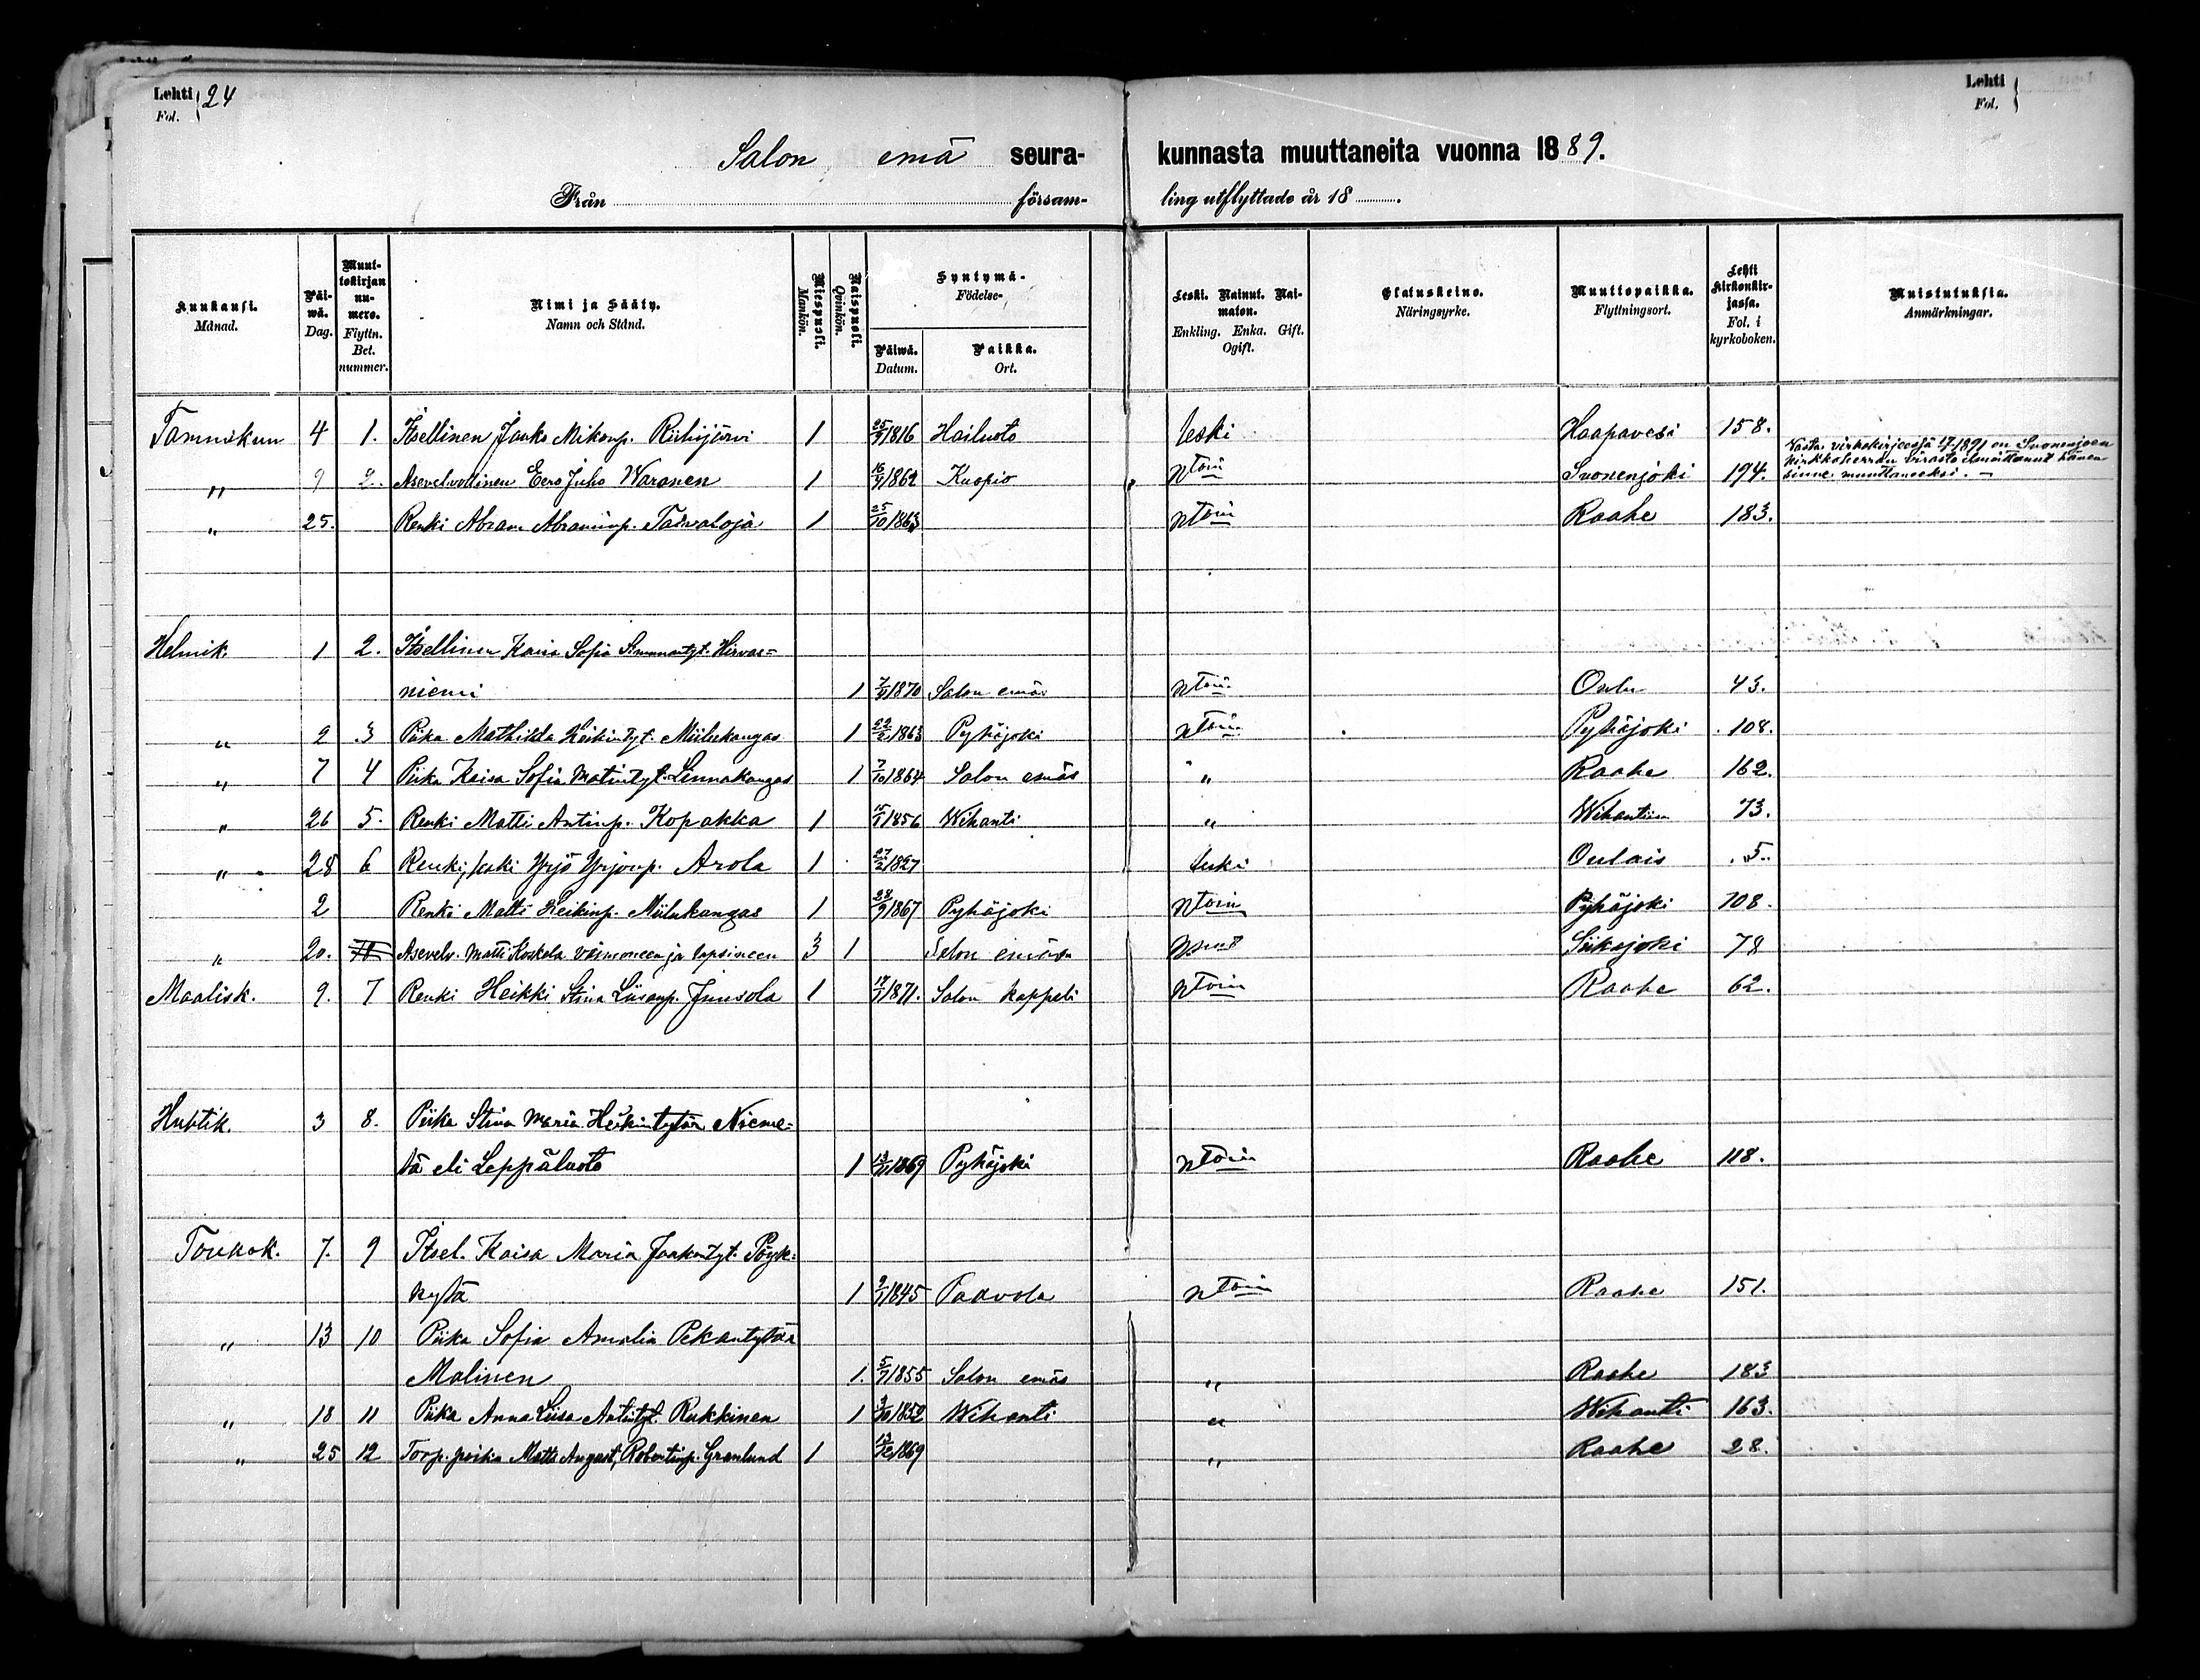 Lehti
Fol. } 24
Lehti
Fol. }
Salon emä seura-kunnasta muuttaneita vuonna 1889.
Från försam-ling utflyttade år 18
Kuukausi. Månad. Päi-wä. Dag. Muut-tokirjan nu-mero. Flyttn. Bet. nummer. Nimi ja Sääty. Namn och Stånd. Miespuoli. Mankön. Naispuoli. Qvinkön. Syntymä- Födelse- Päiwä. Datum. Paikka. Ort. Leski. Nainut. Nai-maton. Enkling. Enka. Gift. Ogift. Elatuskeino. Näringsyrke. Muuttopaikka. Flyttningsort. Lehti kirkonkir-jassa. Fol. i kyrkoboken. Muistutuksia. Anmärkningar.
Tammikun 4 1. Itsellinen Jaako Mikonp. Riihijärvi 1 25/9 1816 Hailuoto leski Haapavesi 158.
" 9 2. Asevelvollinen Eero Juho Waranen 1 16/9 1862 Kuopio Ntoin Suonenjoki 194. Vasta virkakirjeessä 17/1 1891 on Suonenjoen
kirkkoherran virasto ilmoittanut hänen
sinne muuttaneeksi. —
" 25. Renki Abram Abraminp. Taivaloja 1 25/10 1863 Ntoin Raahe 183.
Helmik. 1 2. Itsellinen Kaisa Sofia Simuntyt. Hirvas=
niemi 1 7/9 1870 Salon emäs Ntoin Oulu 43.
" 2 3 Piika Mathilda Heikintyt. Miilukangas 1 22/2 1863 Pyhäjoki Ntoin Pyhäjoki 108.
" 7 4 Piika Kaisa Sofia Matintyt. Linnakangas 1 7/10 1864 Salon emäs " Raahe 162.
" 26 5. Renki Matti Antinp. Kopakka 1 15/1 1856 Wihanti " Wihantiin 73.
" 28 6 Renki, leski Yrjö Yrjönp. Arola 1 27/2 1827 leski Oulais 5.
2 Renki Matti Heikinp. Miilukangas 1 28/9 1867 Pyhäjoki Ntoin Pyhäjoki 108.
" 20. Asevelv. Matti Koskela vaimoneen ja lapsineen 3 1 Salon emäsn Siikajoki 78
Maalisk. 9. 7 Renki Heikki Stina Liisanp. Junsola 1 1871. Salon kappeli Ntoin Raahe 62.
Huhtik. 3 8. Piika Stina Maria Heikintytär Nieme=
lä eli Leppäluoto 1 13/11 1869 Pyhäjoki Ntoin Raahe 118.
Toukok. 7. 9 Itsel. Kaisa Maria Jaakontyt. Pöyk=
kytä 1 9/1 1845 Paavola Ntoin Raahe 151.
" 13 10 Piika Sofia Amalia Pekantytär
Malinen 1. 5/9 1855 Salon emäs " Raahe 183
" 18 11 Piika Anna Liisa Antintyt. Rukkinen 1 3/10 1852 Wihanti " Wihanti 163.
" 25 12 Torp. poika Matti August Robertinp. Granlund 1 13/12 1869 " Raahe 28.